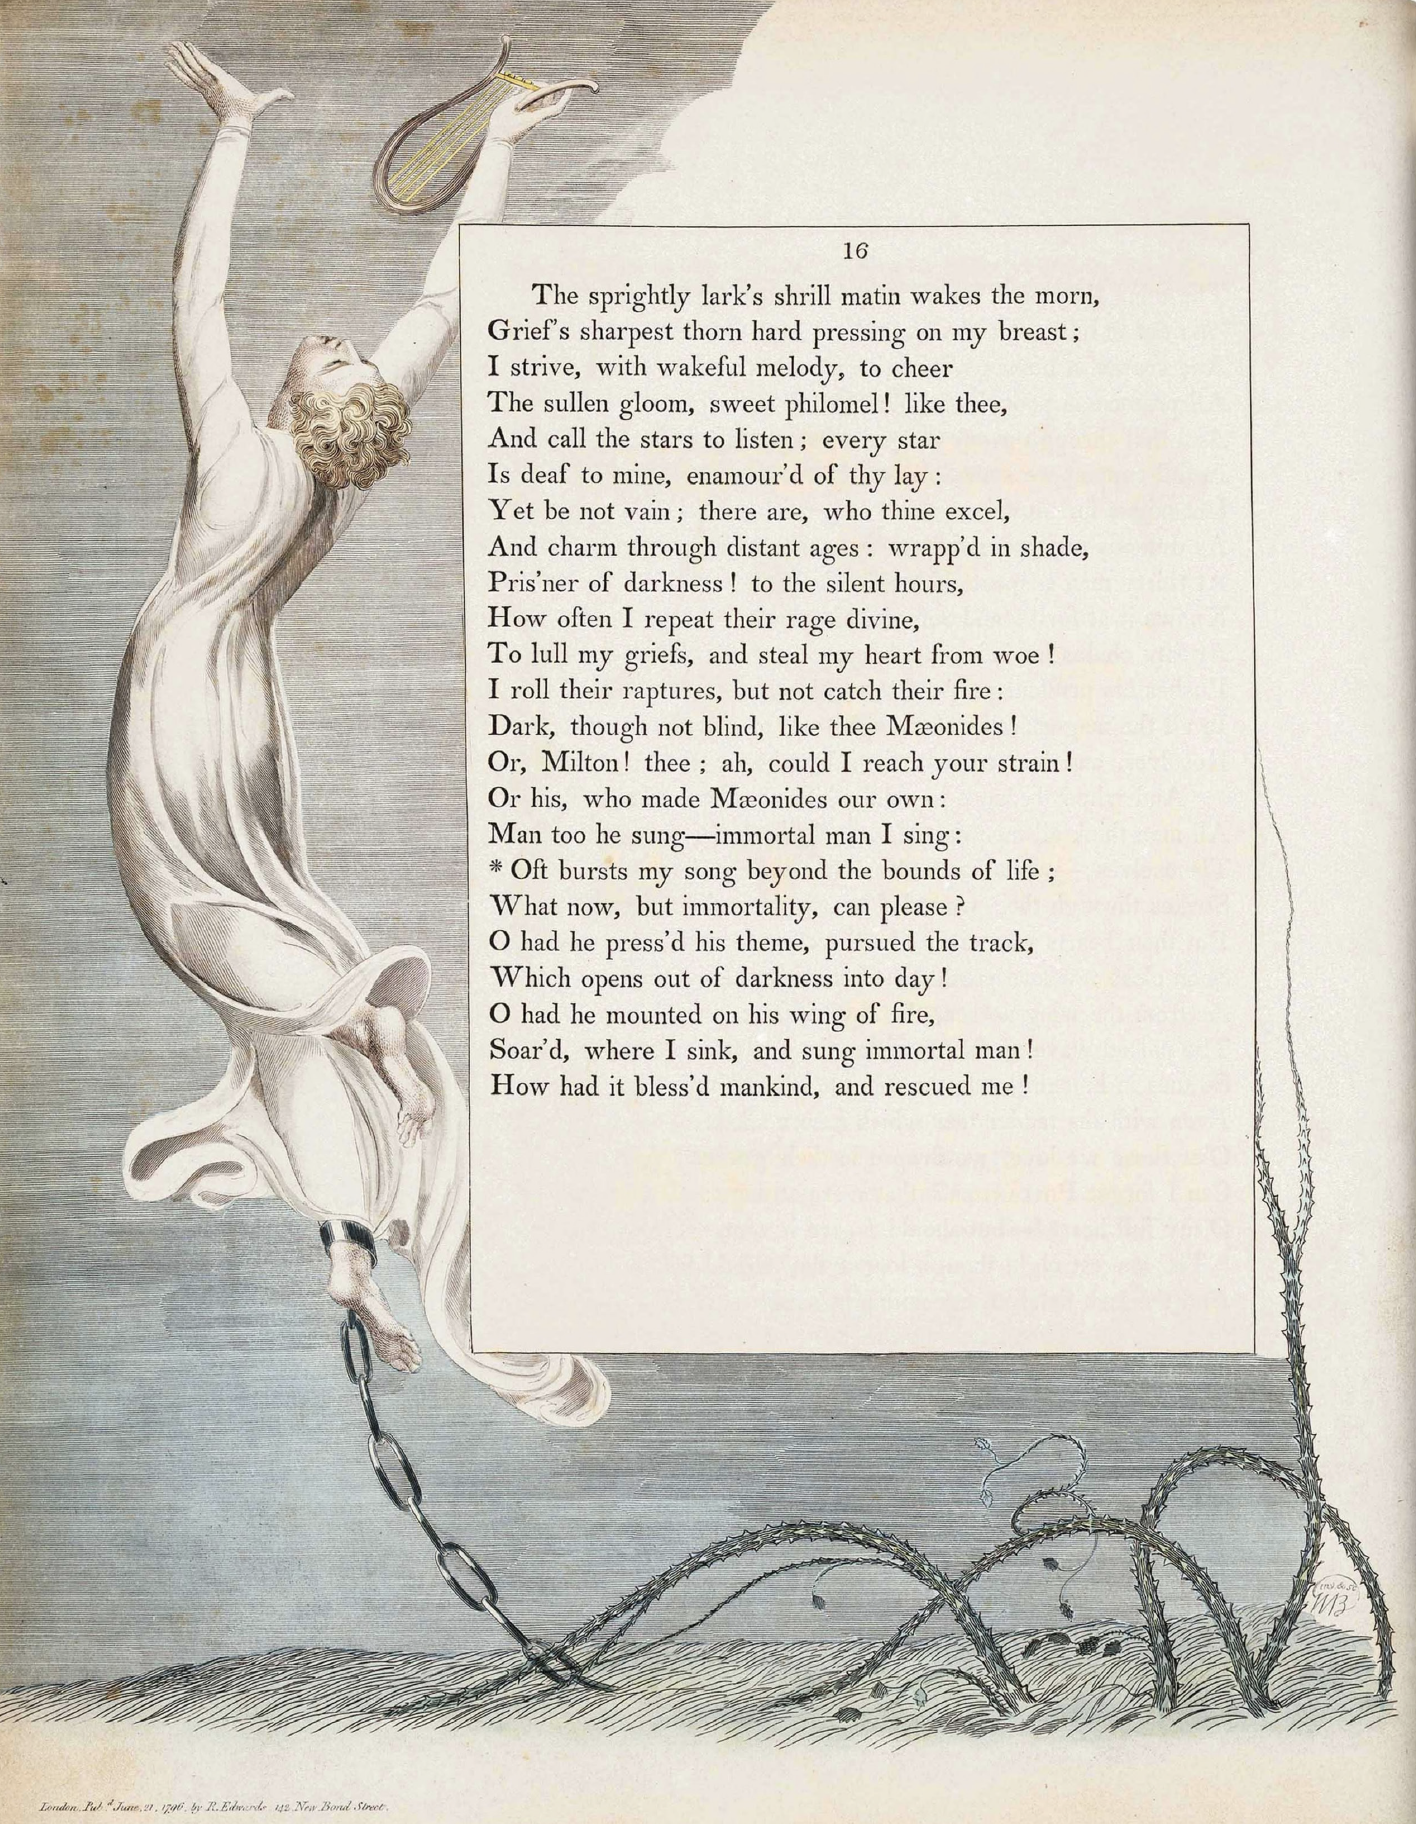 16
The sprightly lark's shrill matin wakes the morn,
Grief's sharpest thorn hard pressing on my breast;
I strive, with wakeful melody, to cheer
The sullen gloom, sweet philomel! like thee,
And call the stars to listen; every star
Is deaf to mine, enamour'd of thy lay:
Yet be not vain; there are, who thine excel,
And charm through distant ages: wrapp'd in shade,
Pris'ner of darkness! to the silent hours,
How often I repeat their rage divine,
To lull my griefs, and steal my heart from woe!
I roll their raptures, but not catch their fire:
Dark, though not blind, like thee Mæonides!
Or, Milton! thee; ah, could I reach your strain!
Or his, who made Mæonides our own:
Man too he sung—immortal man I sing:
* Oft bursts my song beyond the bounds of life;
What now, but immortality, can please?
O had he press'd his theme, pursued the track,
Which opens out of darkness into day!
O had he mounted on his wing of fire,
Soar'd, where I sink, and sung immortal man!
How had it bless'd mankind, and rescued me!
inv & sc
WB
London, Pub.d June, 21, 1796, by R. Edwards 142 New Bond Street.